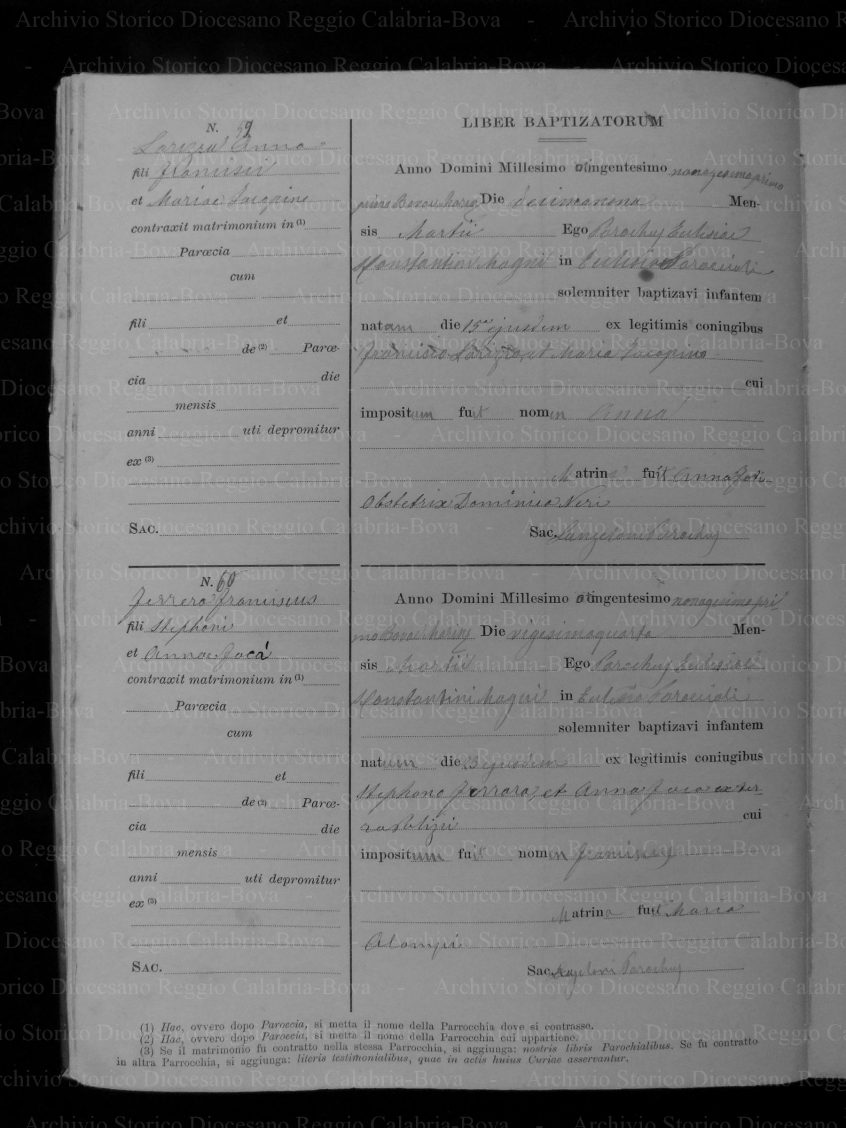 LIBER BAPTIZATORUM
N. 59
Larizza Anna
fili Francisci
et Mariae Iacopino
contraxit matrimonium in (1)
Parœcia
cum
fili et
de (2) Parœ-
cia die
mensis
anni uti depromitur
ex (3)
SAC.
Anno Domini Millesimo octingentesimo nonagesimo primo
Bovae Marina Die decimanona Men-
sis Martii Ego Parochus Ecclesiae
Constantini Magni in Ecclesia Parochiali
solemniter baptizavi infantem
natam die 15a ejusdem ex legitimis coniugibus
Francisco Larizza, et Maria Iacopino
cui
impositum fuit nomen Anna
Matrina fuit Anna
Obstetrix Dominica Neri
Sac. Parochus
N. 60
Ferrara Franciscus
fili Stephani
et Anna Jacà
contraxit matrimonium in (1)
Parœcia
cum
fili et
de (2) Parœ-
cia die
mensis
anni uti depromitur
ex (3)
SAC.
Anno Domini Millesimo octingentesimo nonagesimo pri
mo Bovae Marina Die vigesimaquarta Men-
sis Martii Ego Parochus Ecclesiae
Constantini Magni in Ecclesia Parochiali
solemniter baptizavi infantem
natum die 23 ejusdem ex legitimis coniugibus
Stephano Ferrara, et Anna Jaca ex ter
ra Palizzi cui
impositum fuit nomen Franciscus
Matrina fuit Maria
Alampi
Sac. Parochus
(1) Hac, ovvero dopo Parœcia, si metta il nome della Parrocchia dove si contrasse.
(2) Hac, ovvero dopo Parœcia, si metta il nome della Parrocchia cui appartiene.
(3) Se il matrimonio fu contratto nella stessa Parrocchia, si aggiunga: nostris libris Parochialibus. Se fu contratto
in altra Parrocchia, si aggiunga: literis testimonialibus, quae in actis huius Curiae asservantur.
Archivio Storico Diocesano Reggio Calabria-Bova